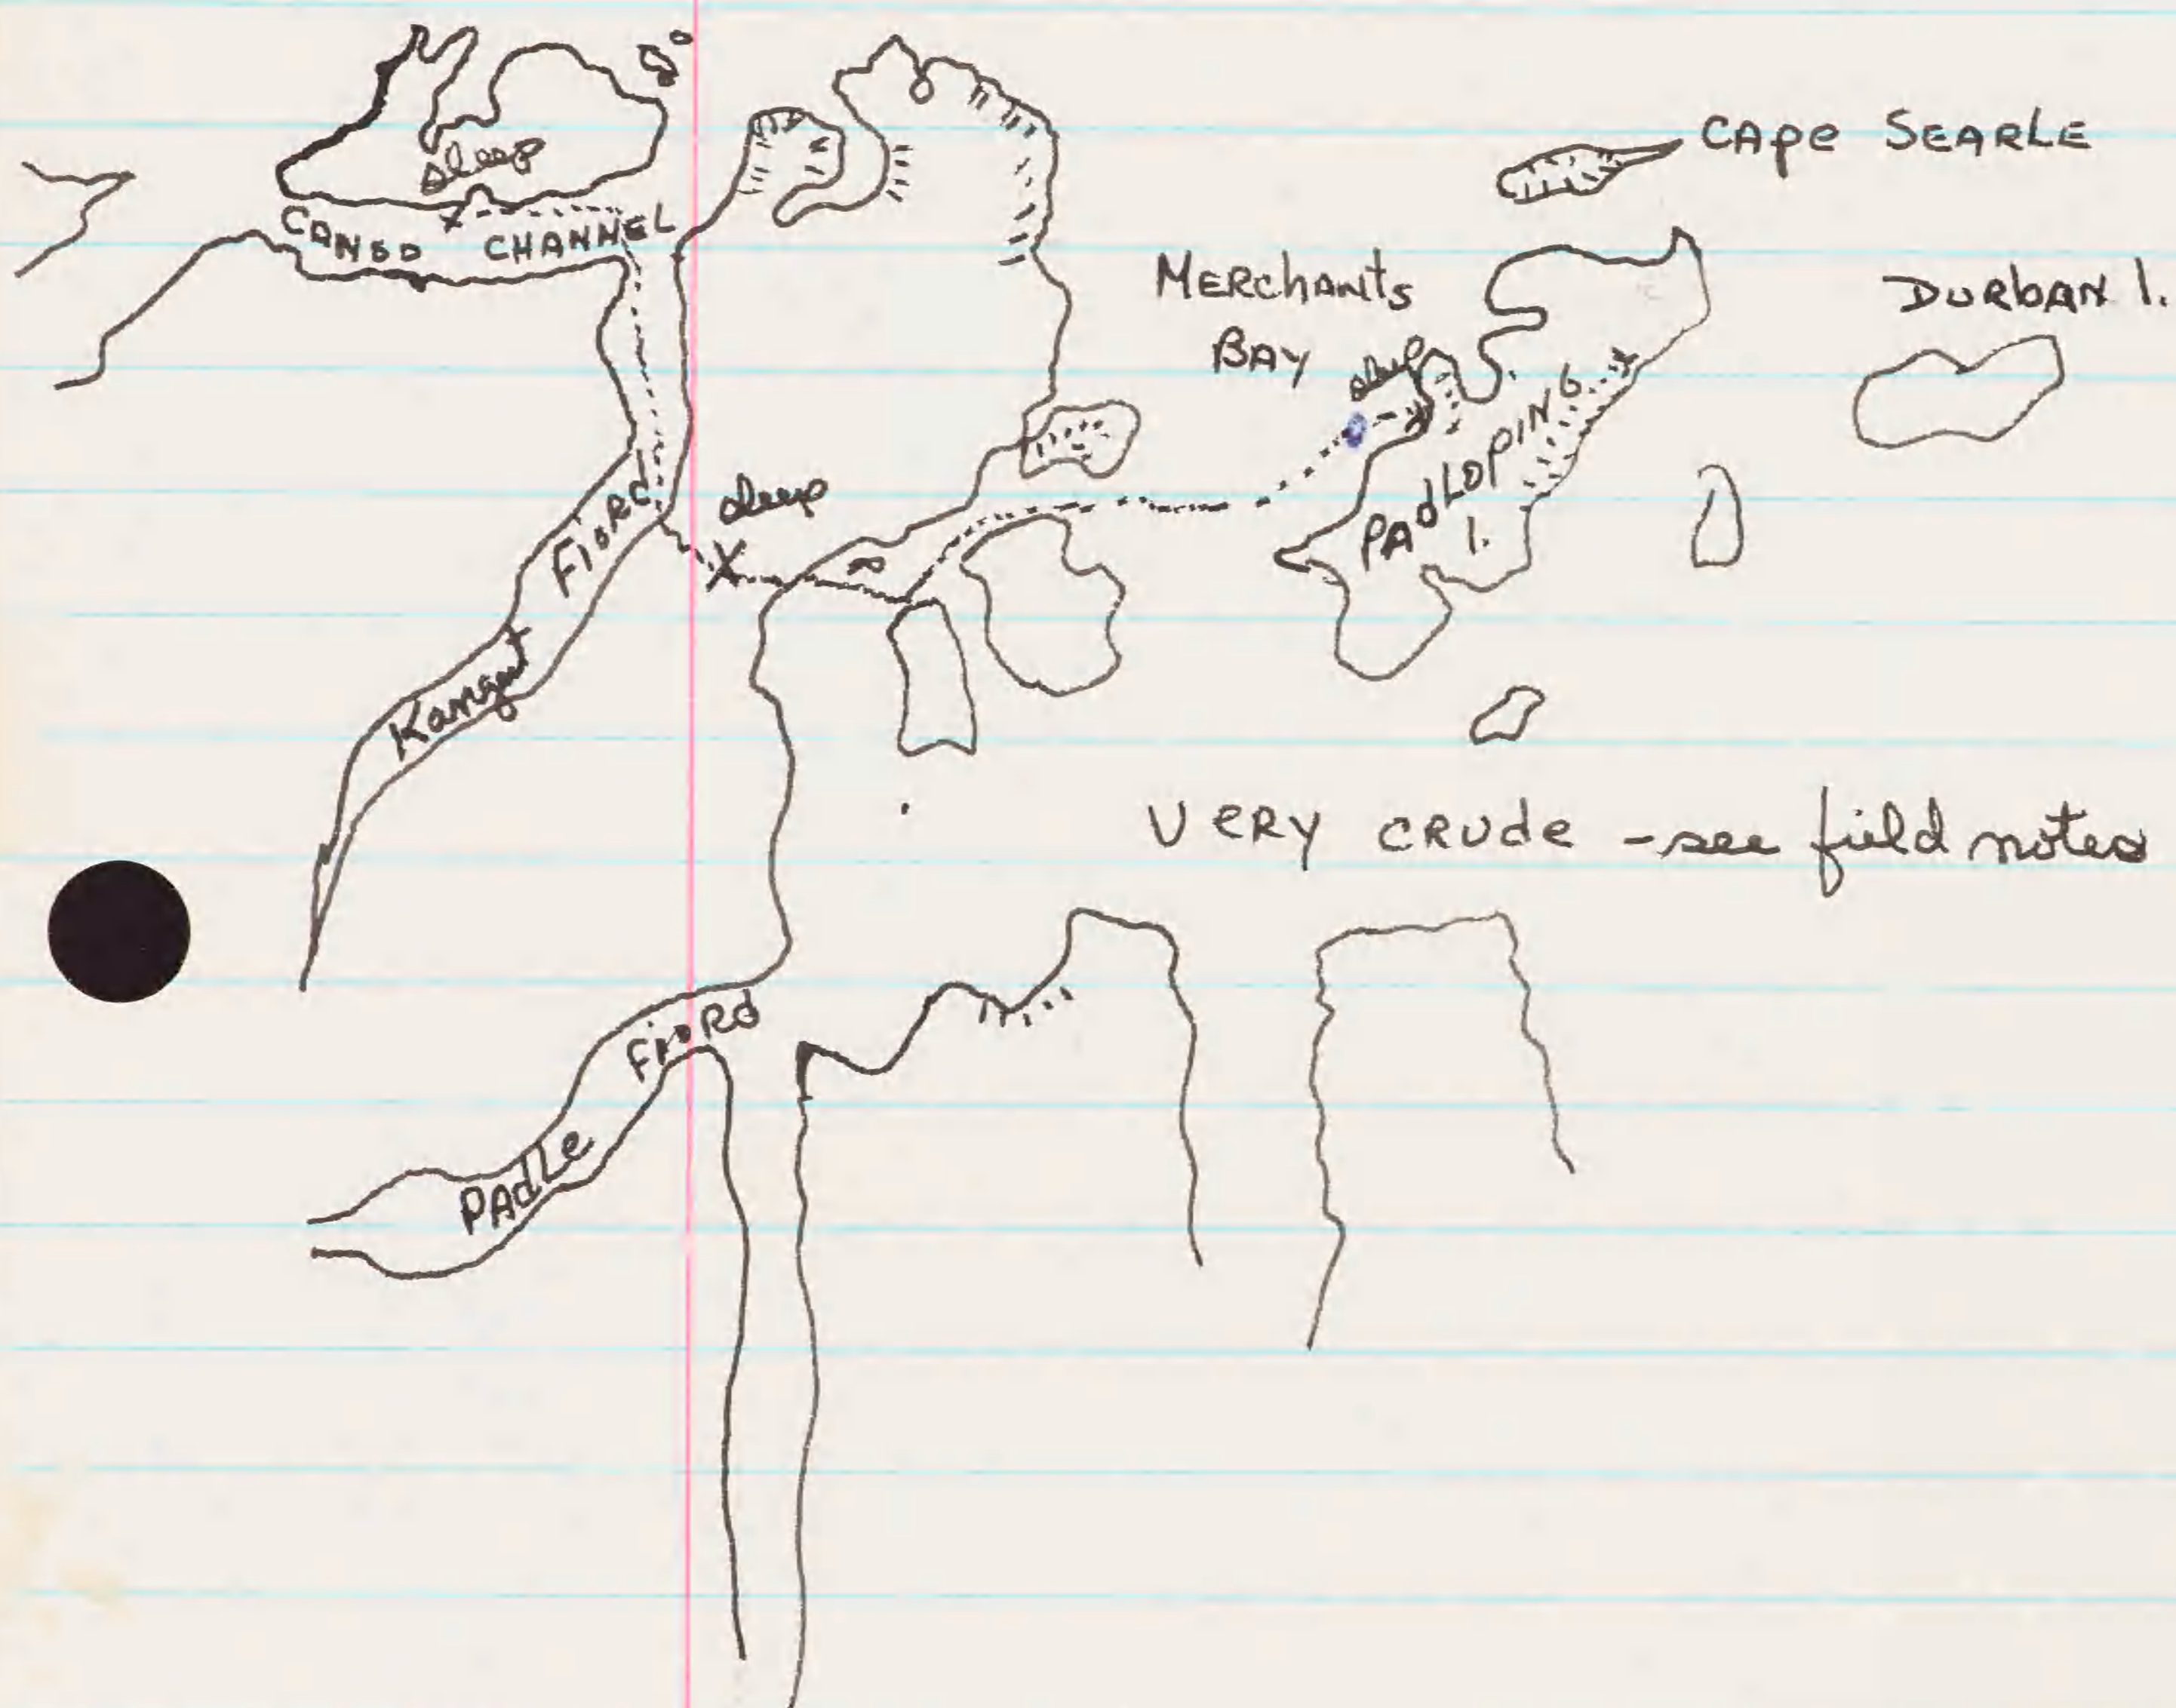 sleep
CANSO CHANNEL
CAPE SEARLE
MERCHANTS
BAY
DURBAN I.
sleep
PADLOPING
I.
sleep
Fiord
Kangut
VERY CRUDE - see field notes
FiORd
PAdLe